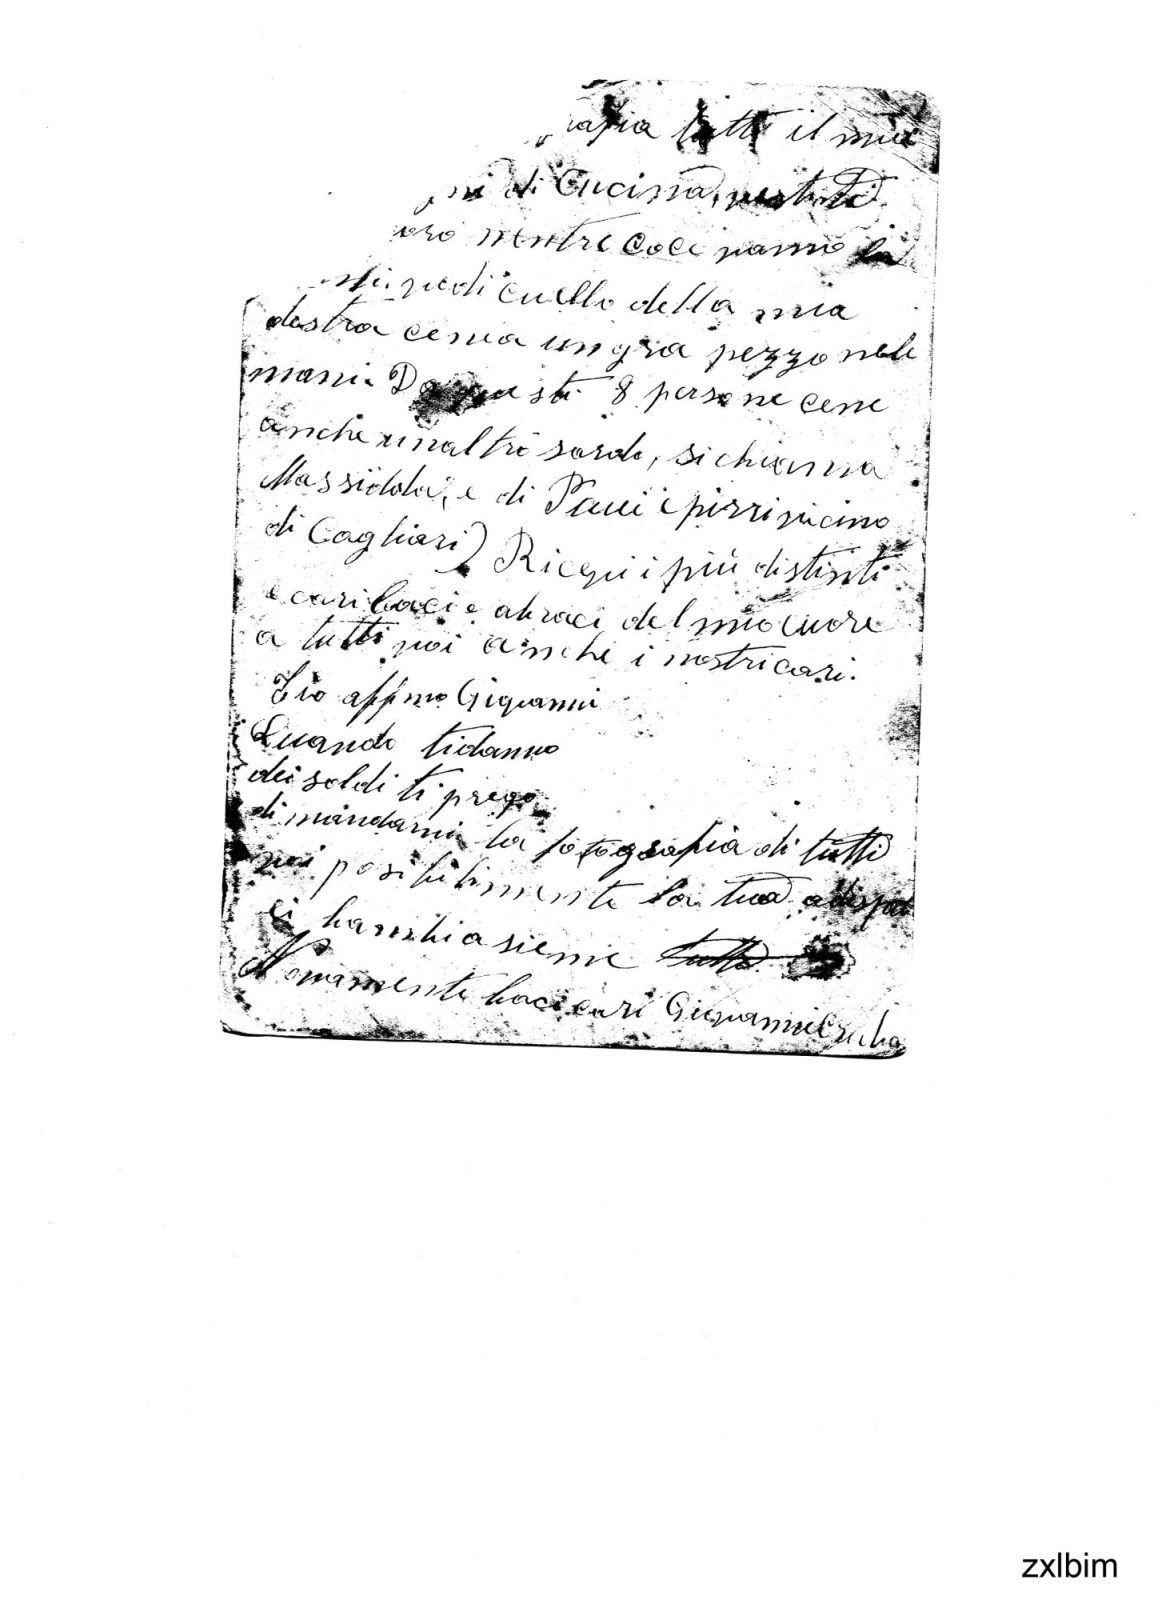 rafia tutti il mio
ni di Cucina, vestiti
oro mentre voci vanno la
vedi quello della mia
destra cenia un gra pezzo nele
mani. Da questi 8 persone cene
anche unaltro sardo, si chiama
Massidda, e di Paui e pirri vicino
di Cagliari) Ricevi i più distinti
e cari baci e abraci del mio cuore
a tutti voi anche i nostri cari.
Tio affmo Giovanni
Quando tidanno
dei soldi ti prego
di mandarmi la fotografia di tutti
voi posibilimente la tua
ei bambi asieme tutti
Novamente baci cari Giovanni
zxlbim